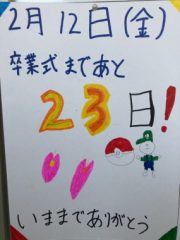 2月12日(金)
卒業式まであと
23日!
いままでありがとう